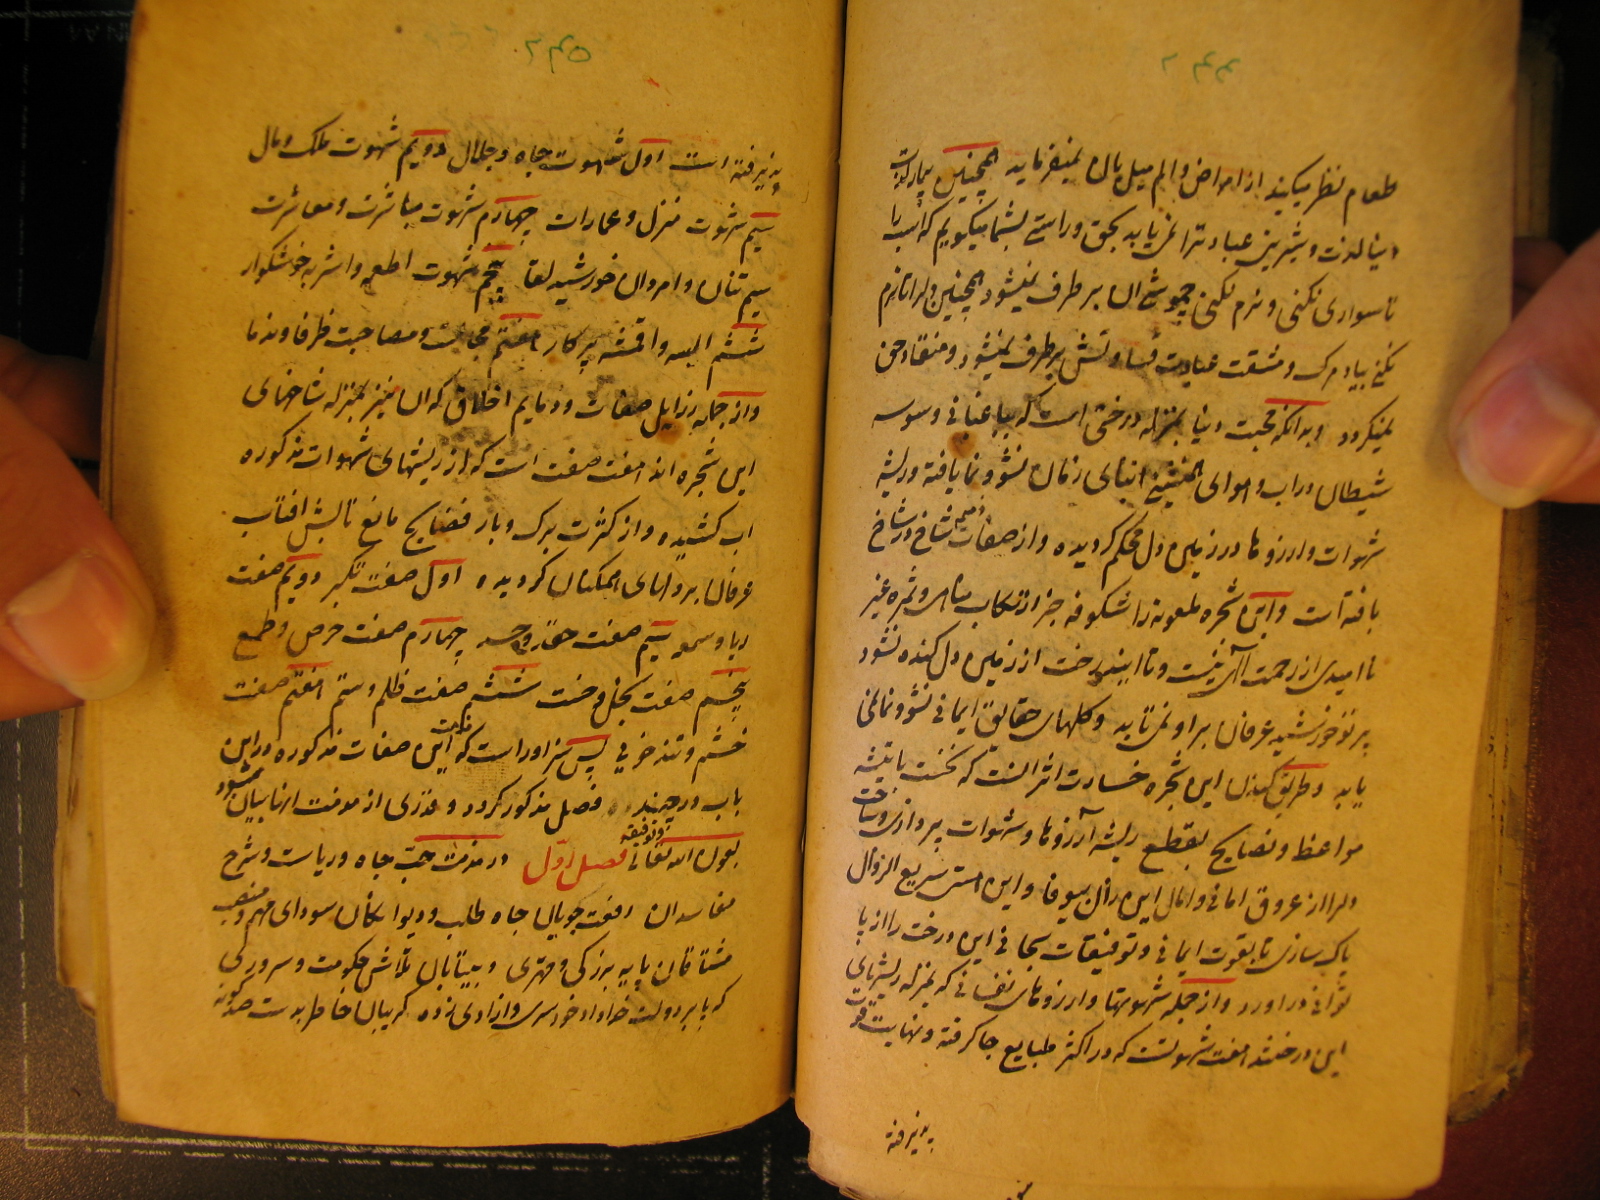 ۲۴۴
طعام نظر میکیند از امراض و الم میل بان نمیفرماید همچنین بیماران
دنیا لذت و شیرینی عبادت را نمی یابد بحق و راستی بشما میکویم که اسب را
تا سواری نکنی و نرم نکنی چموشی ان بر طرف نمیشود همچنین دلها تا نرم
نکنی بیاد مرک و مشقت عبادت قساوتش بر طرف نمیشود و منقاد حق
نمیکردد و بدانکه محبت دنیا بمنزله درختی است که بباغبانی وسوسه
شیطان و راب و هوای همنشینی ابنای زمان نشو و نما یافته و ریشه
شهوات و ارزوها در زمین دل محکم کردیده و از صفات ذمیمه شاخ در شاخ
یافته است و این شجره ملعونه را شکوفه جز ارتکاب مناهی و ثمره غیر
نا امیدی از رحمت الهی نیست و تا این درخت از زمین دل کنده نشود
پرتو خورشید عرفان بر او نمی تابد و کلهای حقایق ایمانی نشو و نما نمی
یابد و طریق کندن این شجره خسارت اثر انست که نخست با تیشه
مواعظ و نصایح بقطع ریشه آرزوها و شهوات پردازی و ساخت
دل را از عروق امانی و امال این زال بیوفا و این هستی سریع الزوال
پاک سازی تا بقوت ایمانی و توفیقات سبحانی این درخت را از پا
توانی در اورد و از جمله شهوتها و ارزوهای نفسانی که بمنزله ریشهای
این درختند هفت شهوتست که در اکثر طبایع جا کرفته و نهایت قوت
پذیرفته
۲۴۵
پذیرفته است اول شهوت جاه و جلال دویم شهوت ملک و مال
سیم شهوت منزل و عمارات چهارم شهوت مباشرت و معاشرت
سیم تنان و امردان خورشید لقا پنجم شهوت اطعمه و اشربه خوشکوار
ششم البسه و اقمشه پر کار هفتم مجالست و مصاحبت ظرفا و ندما
و از جمله رزایل صفات و ذمایم اخلاق که ان نیز بمنزله شاخهای
این شجره اند هفت صفت است که از ریشهای شهوات مذکوره
اب کشیده و از کثرت برک و بار فضایح مانع تابش افتاب
عرفان بر دلهای همکنان کردیده اول صفت تکبر دویم صفت
ریا و سمعه سیم صفت حقد و حسد چهارم صفت حرص و طمع
پنجم صفت بخل و خست ششم صفت ظلم و ستم هفتم صفت
خشم و تندخویی پس سزاوار است که مذمت این صفات مذکوره در این
باب در چند فصل مذکور کردد و قدری از مذمت انها بیان میشود
بعون الله تعالی و توفیقه فصل اول در مذمت حب جاه و ریاست و شرح
مفاسد ان رفعت جویان جاه طلب و دیوانکان سودای مهم و منصب
مشتاقان پایه بزرکی و مهتری و بیتابان تلاش حکومت و سروری
که پا بر دولت خداداد خرسندی و ازادی زده کریبان خاطر بدست صد کونه